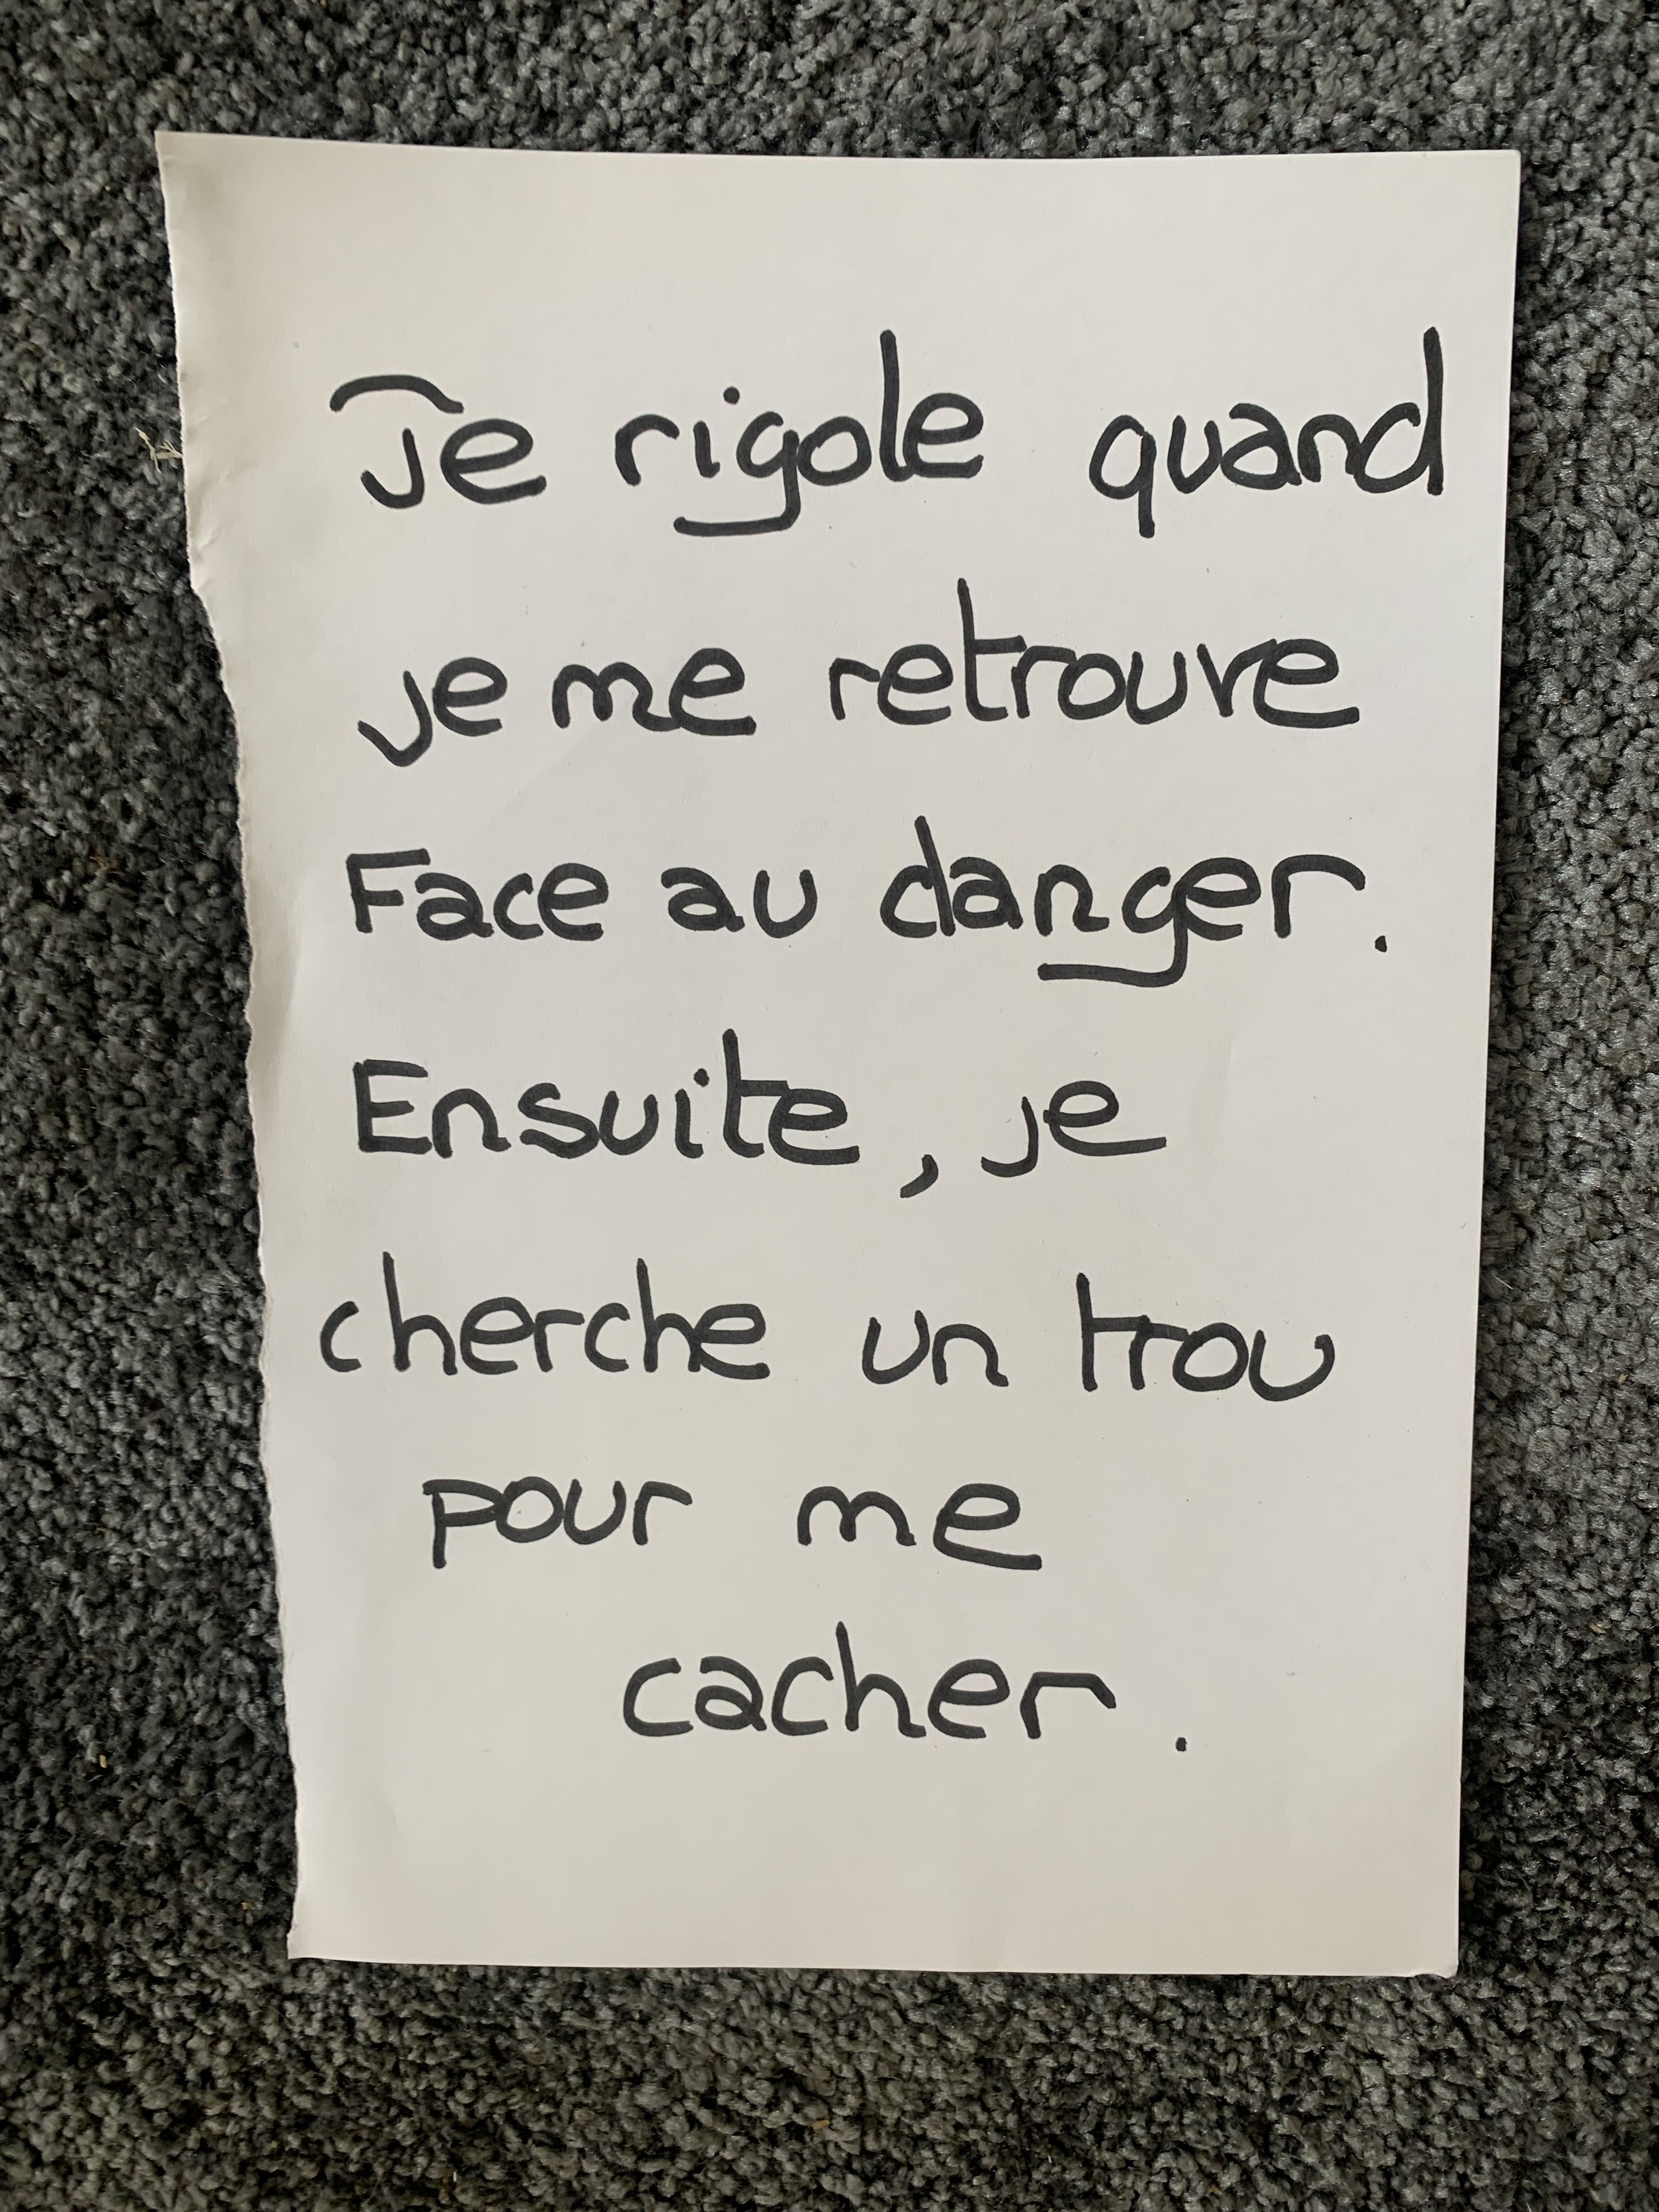 Je rigole quand
je me retrouve
Face au danger.
Ensuite, je
cherche un trou
pour me
cacher.